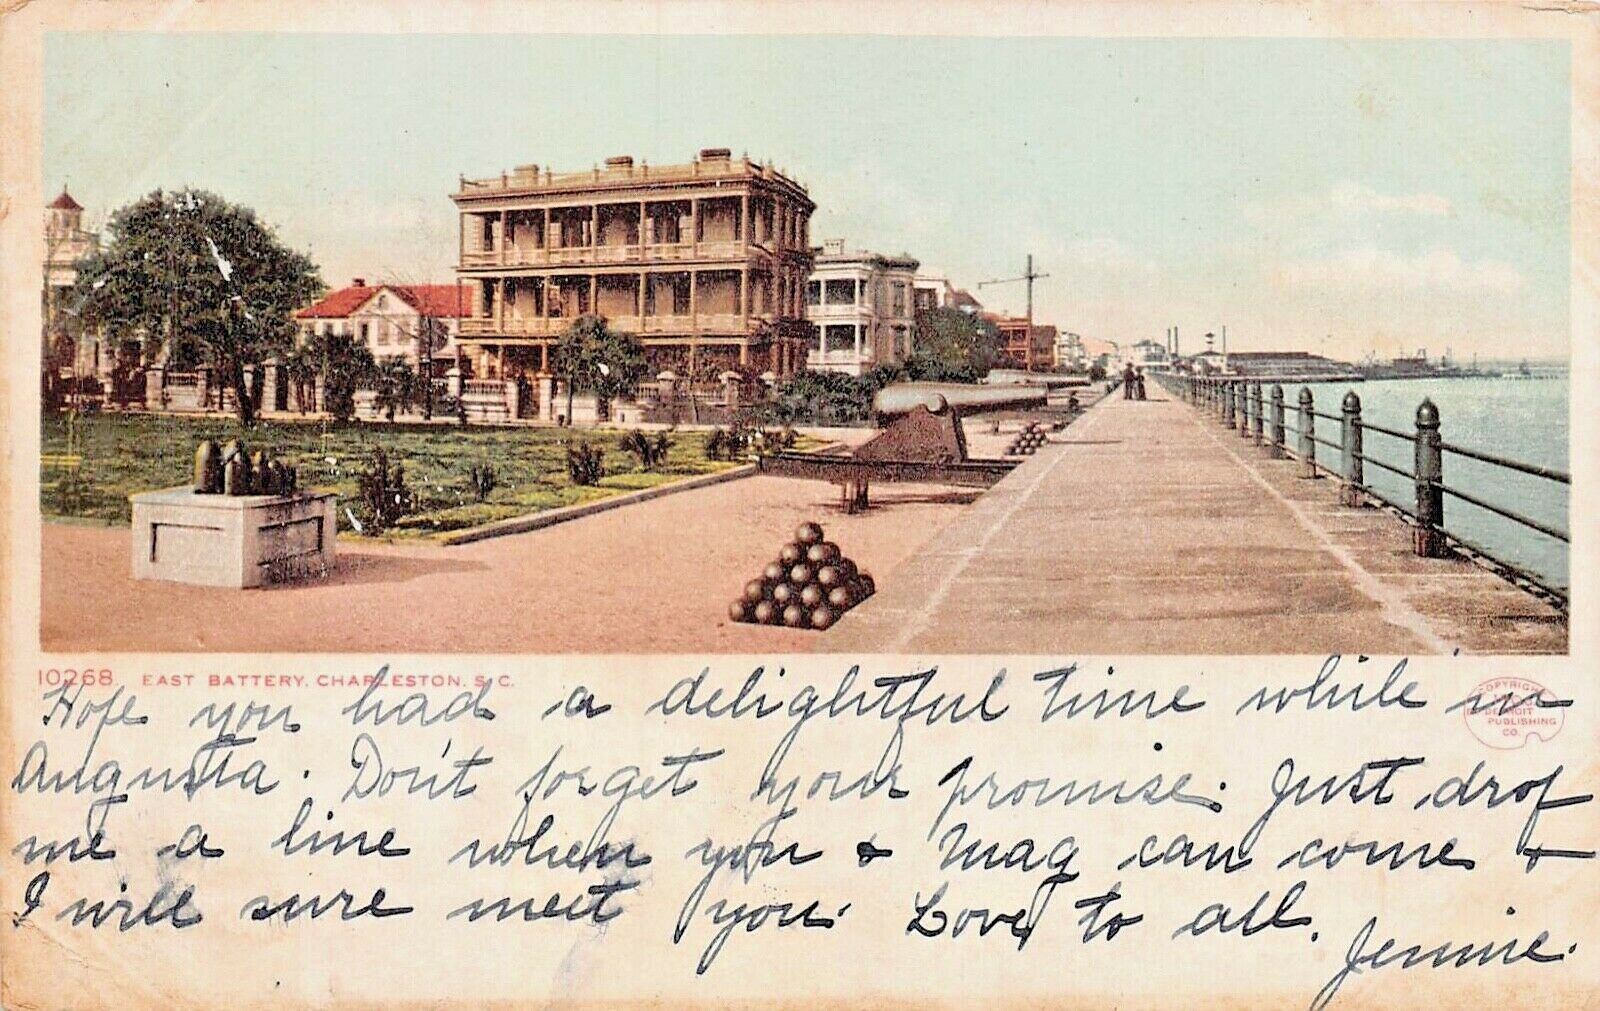 10268. EAST BATTERY, CHARLESTON, S. C.
COPYRIGHT
DETROIT
PUBLISHING
CO.
Hope you had a delightful time while in
Augusta. Don't forget your promise. Just drop
me a line when you & Mag can come &
I will sure meet you. Love to all.
Jennie.